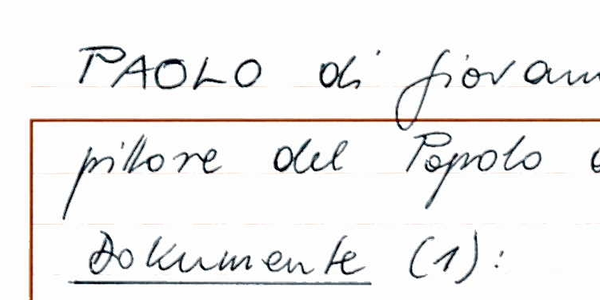 PAOLO di
pittore del Popolo
Dokumente (1):